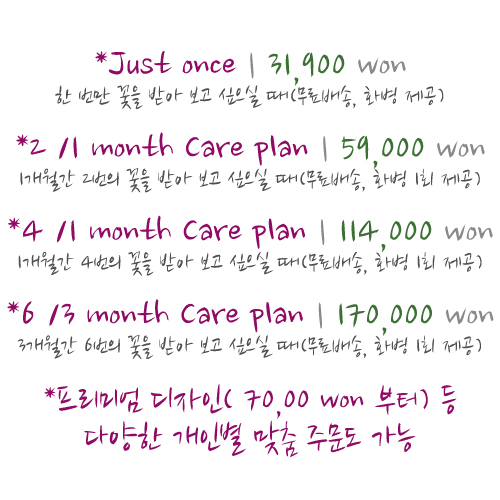 *Just once | 31,900 won
한 번만 꽃을 받아 보고 싶으실 때(무료배송, 화병 제공)
*2 /1 month Care plan | 59,000 won
1개월간 2번의 꽃을 받아 보고 싶으실 때(무료배송, 화병 1회 제공)
*4 /1 month Care plan | 114,000 won
1개월간 4번의 꽃을 받아 보고 싶으실 때(무료배송, 화병 1회 제공)
*6 /3 month Care plan | 170,000 won
3개월간 6번의 꽃을 받아 보고 싶으실 때(무료배송, 화병 1회 제공)
*프리미엄 디자인( 70,00 won 부터) 등
다양한 개인별 맞춤 주문도 가능